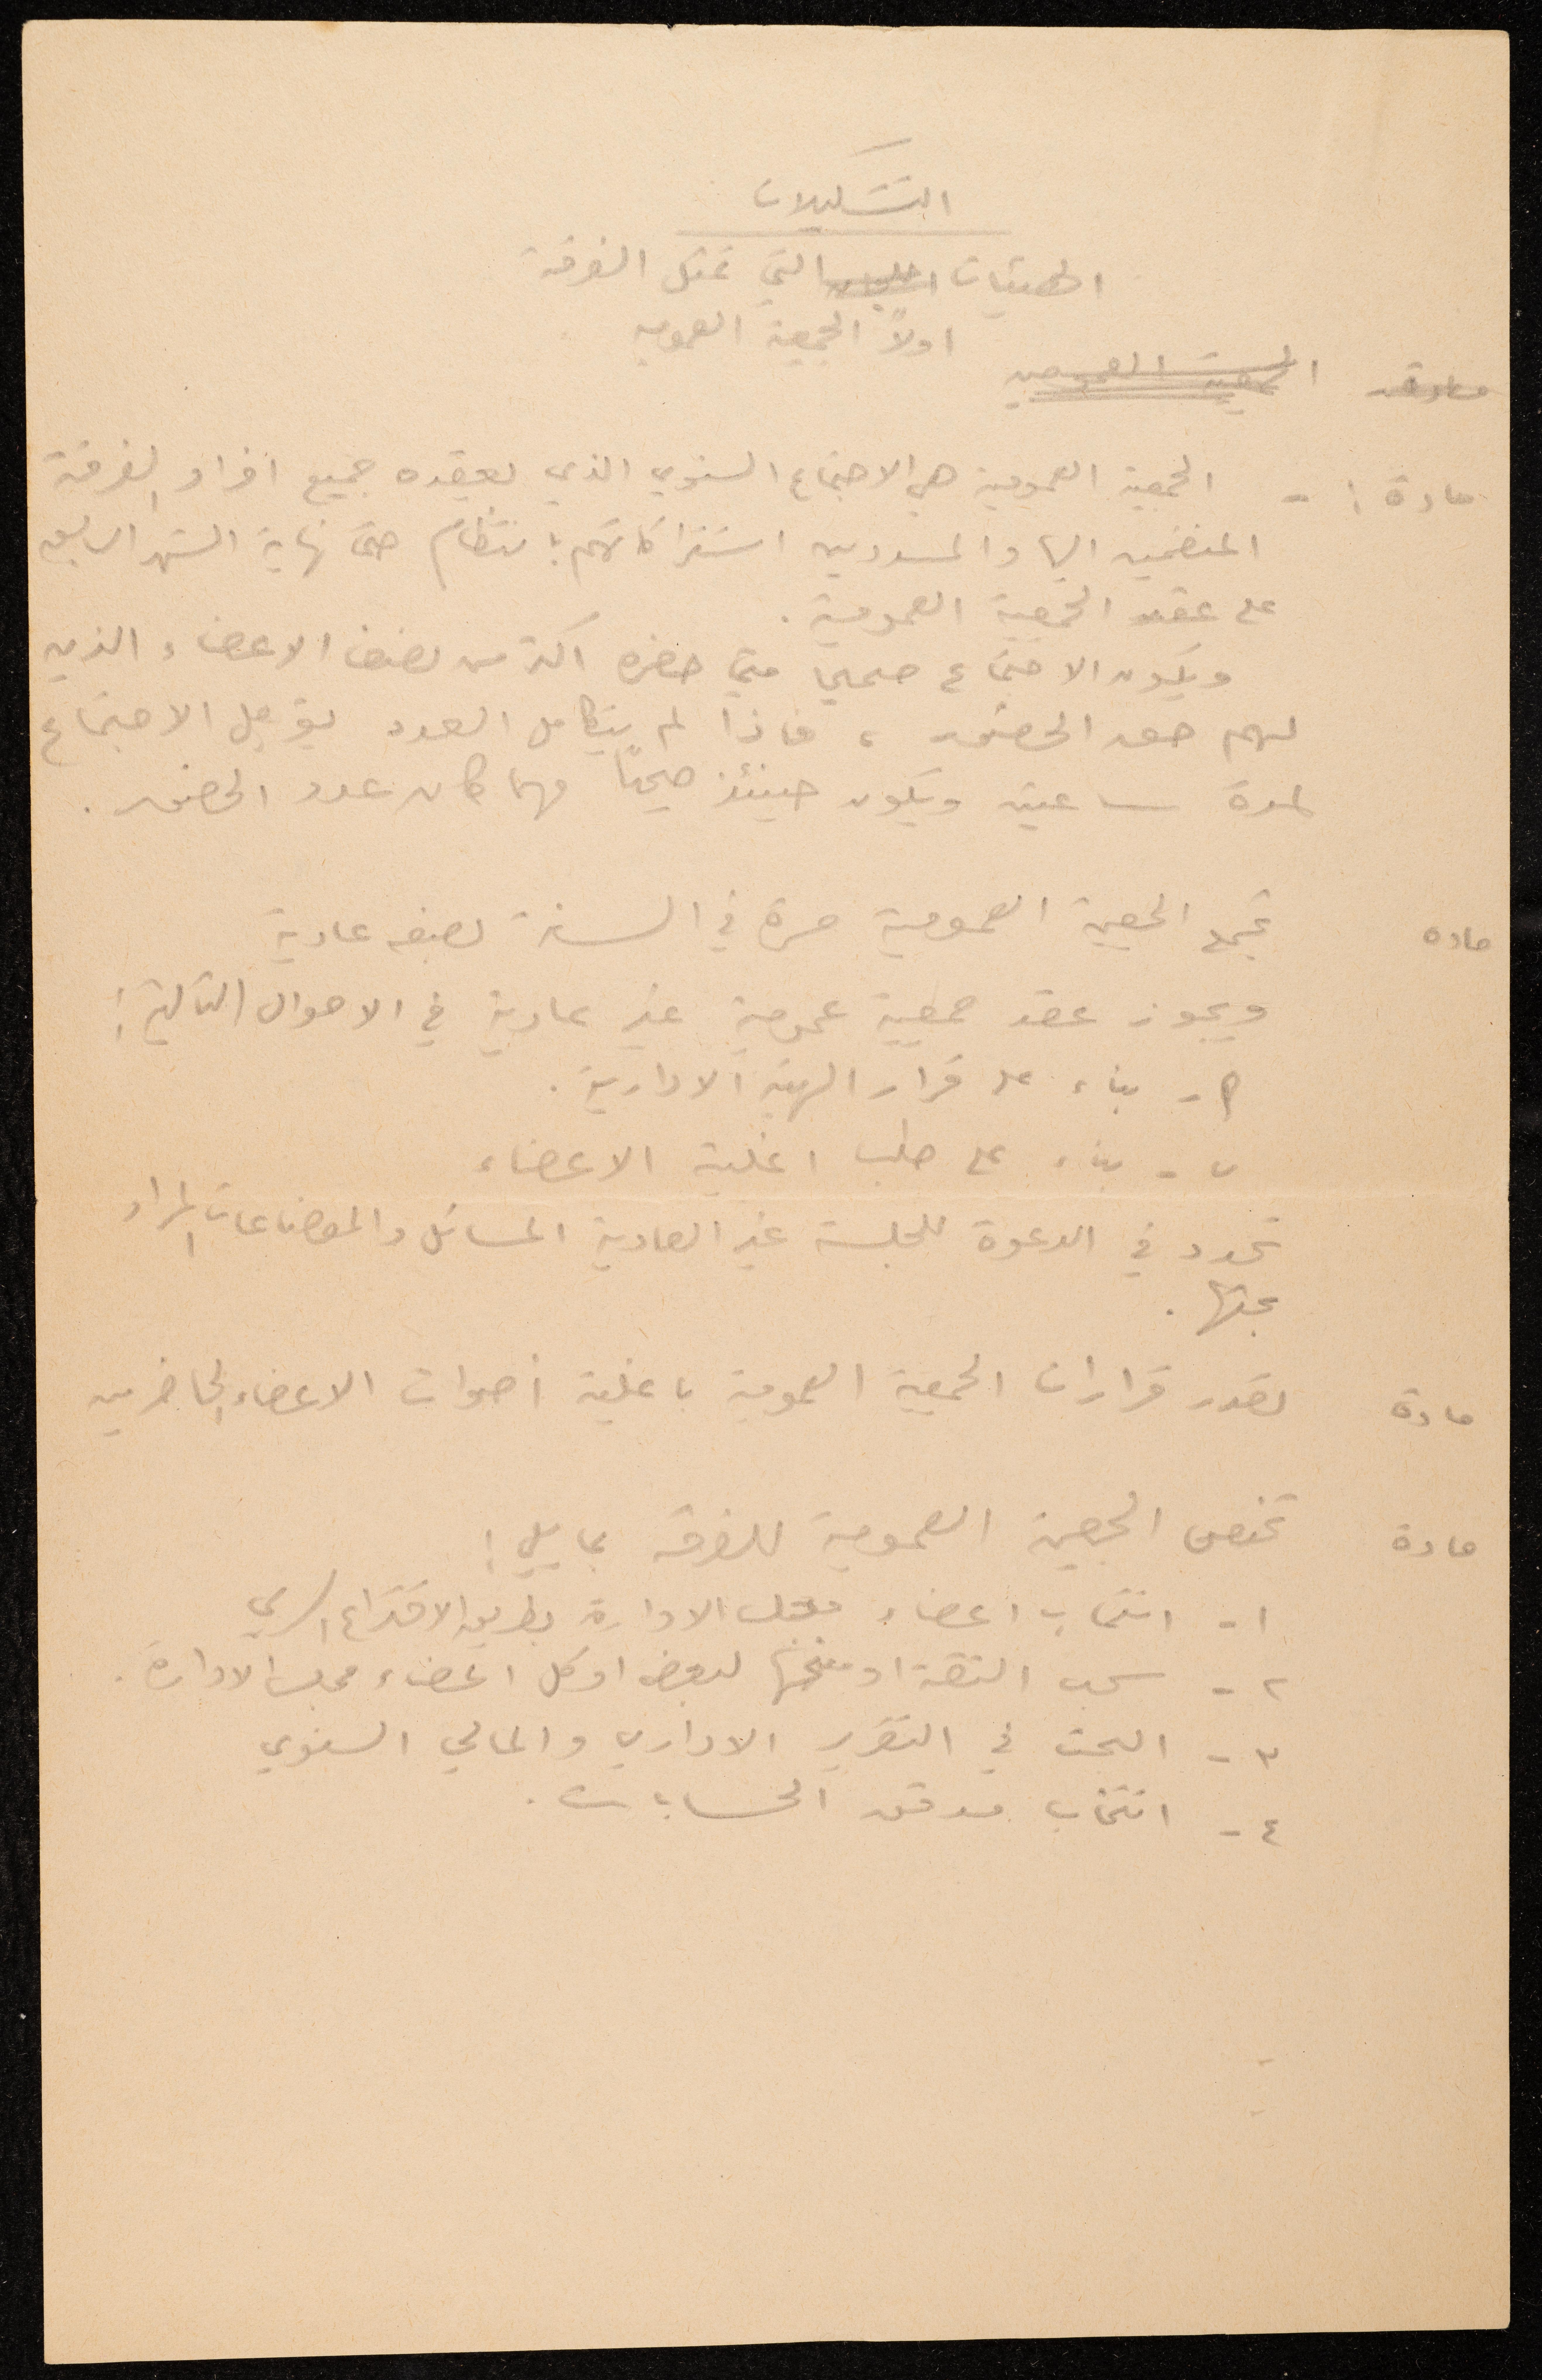 التشكيلات
الهيئات التي تمثل الفرقة
اولاً الجمعية العمومية
مادة الجمعية العمومية
مادة ١ - الجمعية العمومية هي الاجتماع السنوي الذي يعقده جميع افراد الفرقة
المنضمين اليها والمسددين اشتراكاتهم بانتظام حتى نهاية الشهر السابق
على عقد الجمعية العمومية .
ويكون الاجتماع صحيحا متى حضره اكثر من نصف الاعضاء الذين
لهم حق الحضور ، فاذا لم يتكامل العدد يؤجل الاجتماع
لمدة ساعتين ويكون حينئذ صحيحًا مهما كان عدد الحضور .
ماده تجتمع الجمعية العمومية مرة في السنة بصفه عادية
ويجوز عقد جمعية عمومية غير عادية في الاحوال التالية :
أ - بناء على قرار الهيئة الادارية .
ب - بناء على طلب اغلبية الاعضاء
تحدد في الدعوة للجلسة غير العادية المسائل والموضاعات المراد
بحثها .
مادة تصدر قرارات الجمعية العمومية باغلبية أصوات الاعضاء الحاضرين
مادة تختص الجمعية العمومية للفرقة بما يلي :
١ - انتخاب اعضاء مجلس الادارة بطريق الاقتراع السري
٢ - سحب الثقة او منحها لبعض او كل اعضاء مجلس الادارة .
٣ - البحث في التقرير الاداري والمالي السنوي
٤ - انتخاب مدقق الحسابات .